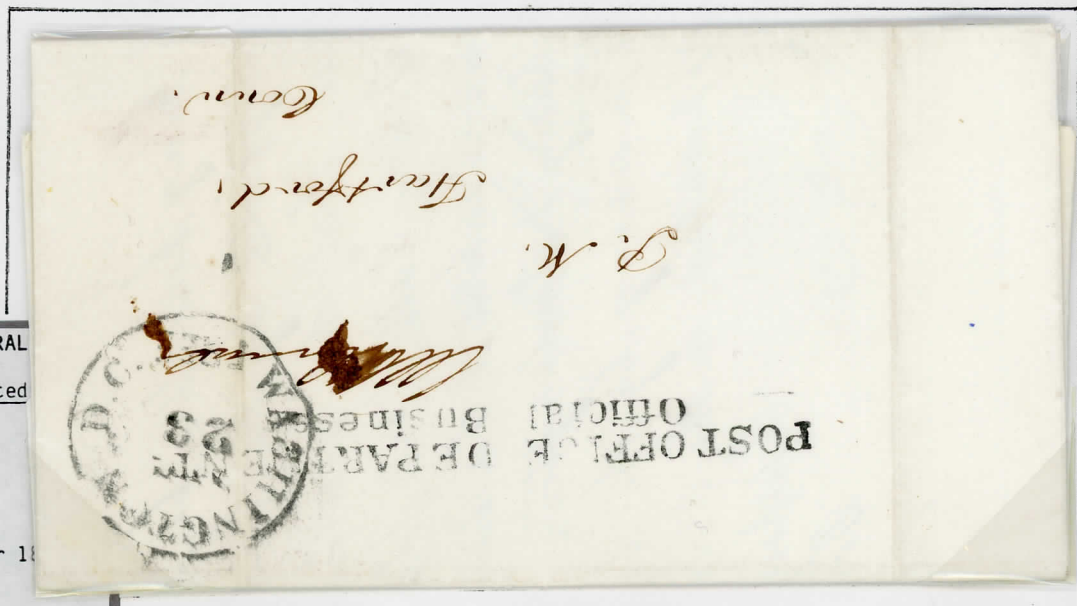 POST OFFICE DEPARTME
Official Business
WASHINGTON D.C.
23
P. M.
Hartford,
Conn.
RAL
ted
r 18